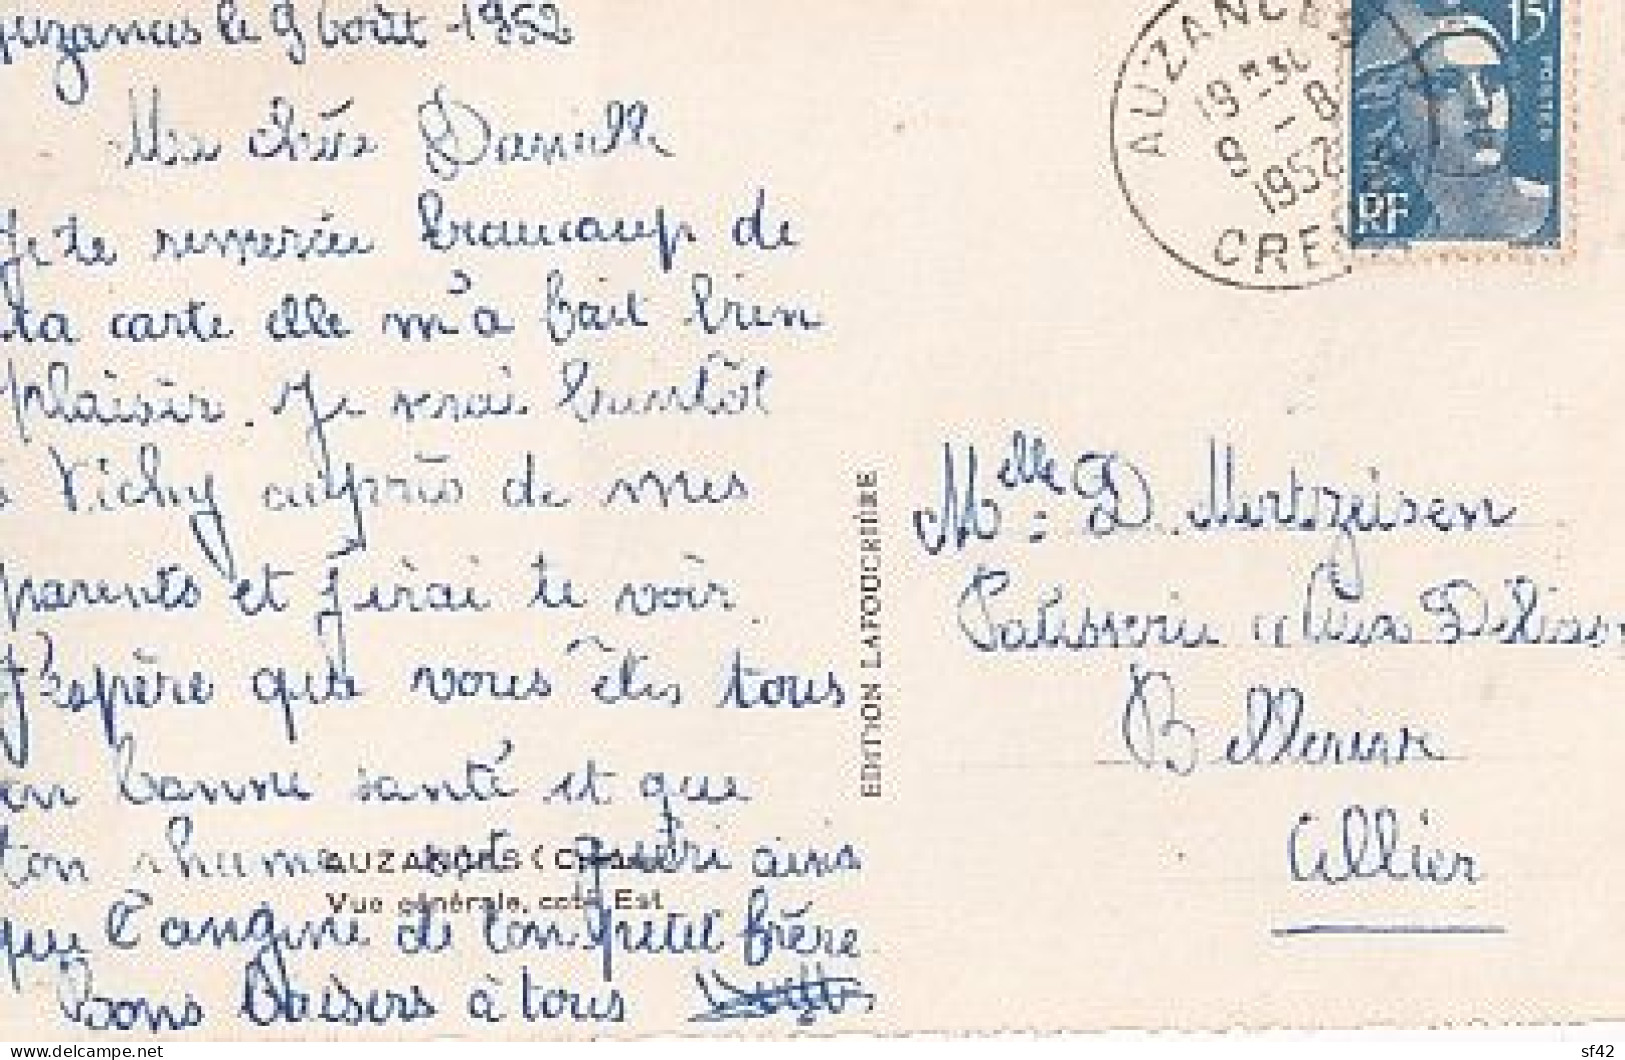 Auzances le 9 Août 1952
Ma chére Danielle
Je te remercie beaucoup de
ta carte elle m'a fait bien
plaisir. Je serai bientôt
à Vichy auprès de mes
parents et j'irai te voir.
J'espère que vous êtes tous
en bonne santé et que
ton rhume est guéri ainsi
que l'angine de ton petit frère.
Bons baisers à tous
AUZANCES (Creuse)
Vue générale, coté Est
EDITION LAFOUCRIÈRE
AUZANCES
19H30
9 - 8
1952
CREUSE
15F
POSTES
RF
Melle D. Mertzeisen
Patisserie "Aux Délices
Bellerive
Allier
delcampe.net
sf42